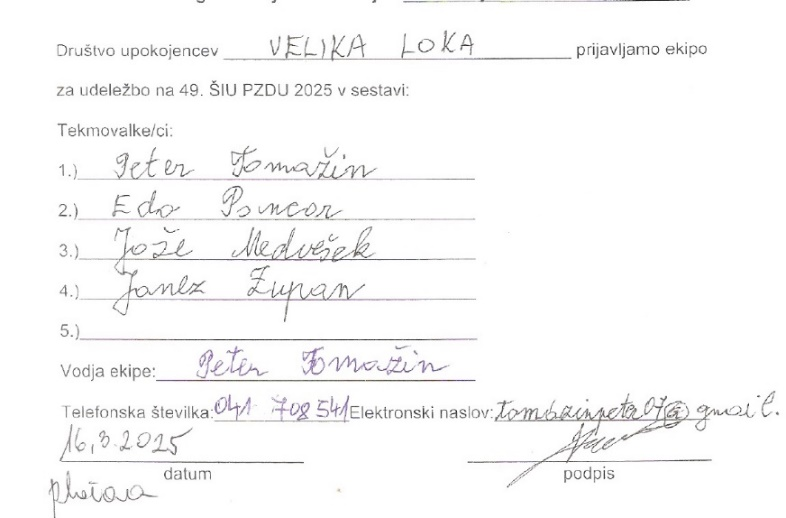 Društvo upokojencev VELIKA LOKA prijavljamo ekipo
za udeležbo na 49. ŠIU PZDU 2025 v sestavi:
Tekmovalke/ci:
1.) Peter Tomažin
2.) Edo Poncor
3.) Jože Medvešek
4.) Janez Župan
5.)
Vodja ekipe: Peter Tomažin
Telefonska številka: 041 708 541 Elektronski naslov:
16,3.2025
datum podpis